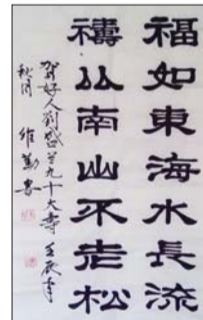 福如東海水長流
禱以南山不老松
賀好人劉啟兰九十大壽 壬辰年
秋月 維勤書